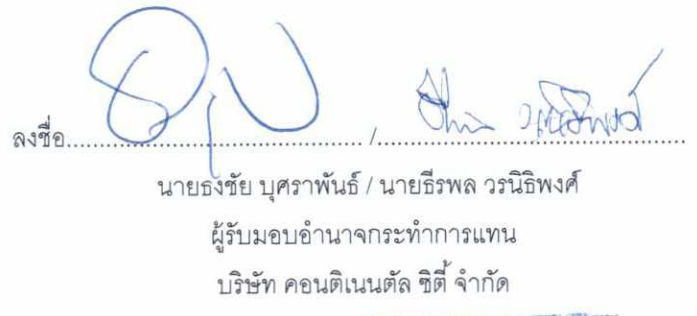 ลงชื่อ........................................ / ........................................
นายธงชัย บุศราพันธ์ / นายธีรพล วรนิธิพงศ์
ผู้รับมอบอำนาจกระทำการแทน
บริษัท คอนติเนนตัล ซิตี้ จำกัด